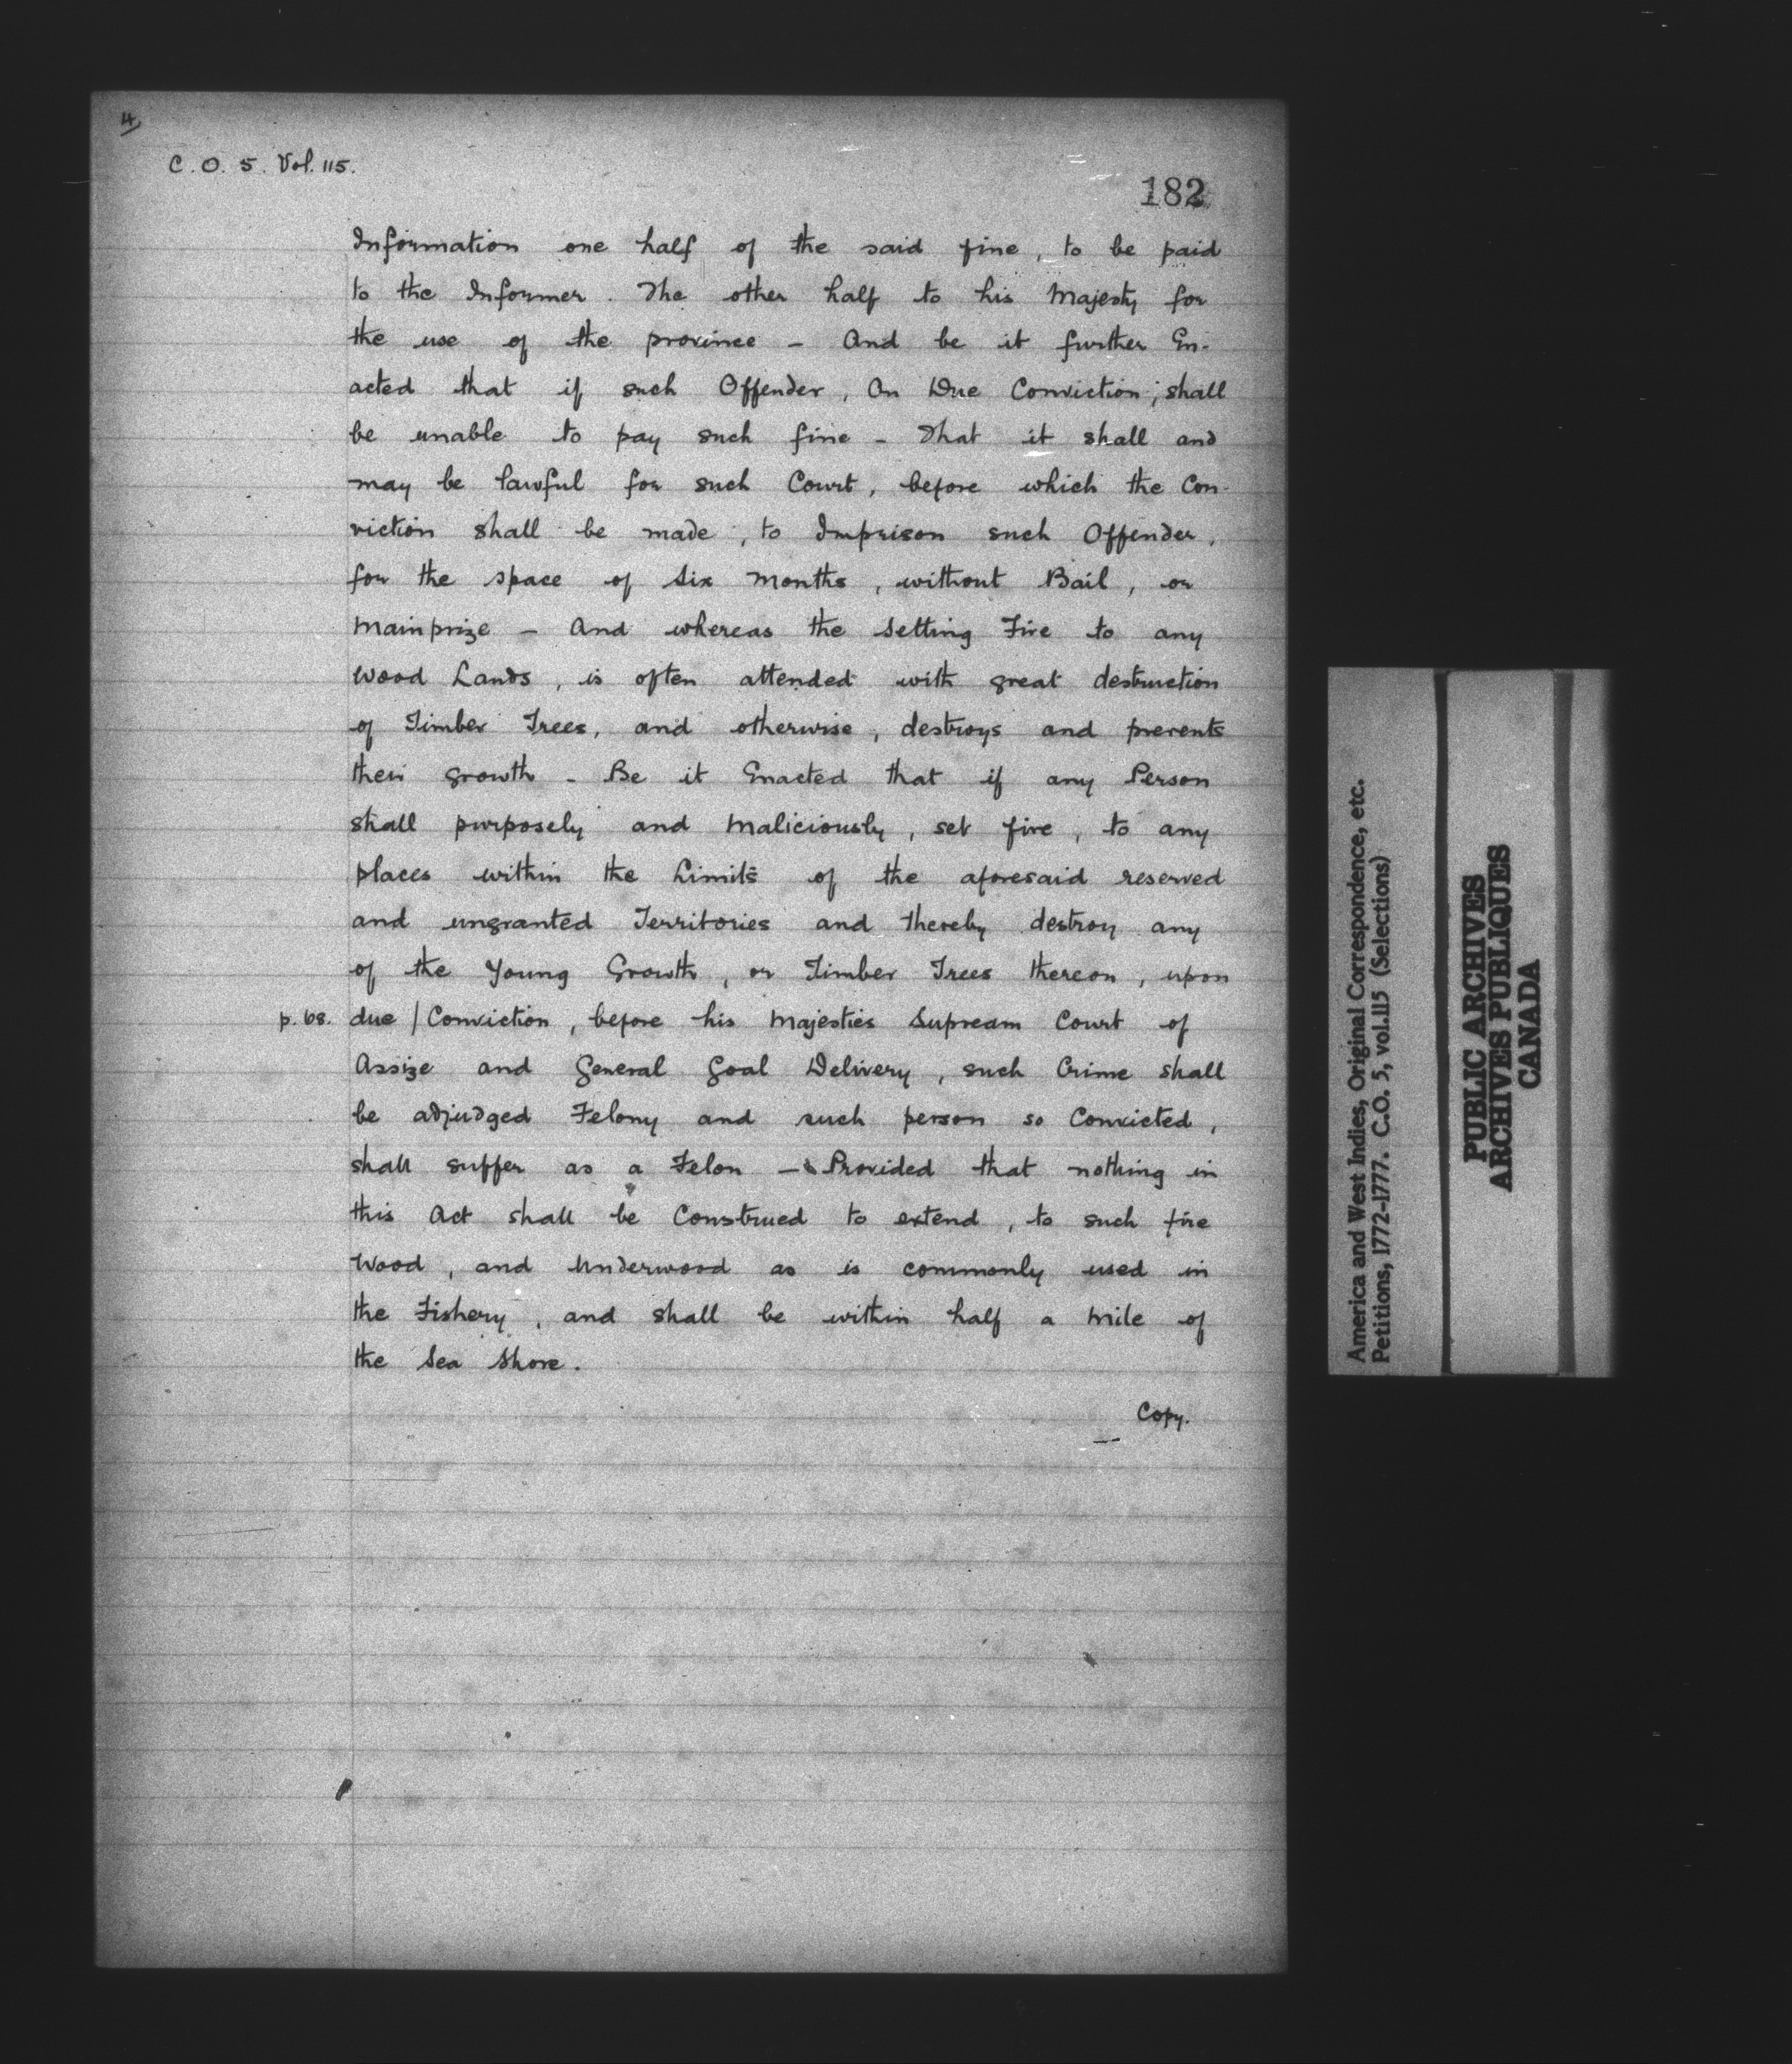 4/
C. O. 5. Vol. 115.
182
Information one half of the said fine, to be paid
to the Informer. The other half to his Majesty for
the use of the province - And be it further En-
acted that if such Offender, On Due Conviction; shall
be unable to pay such fine - That it shall and
may be lawful for such Court, before which the Con-
viction shall be made, to Imprison such Offender,
for the space of Six Months, without Bail, or
Mainprize - And whereas the Setting Fire to any
Wood Lands, is often attended with great destruction
of Timber Trees, and otherwise, destroys and prevents
their growth - Be it Enacted that if any Person
shall purposely and Maliciously, set fire, to any
places within the Limits of the aforesaid reserved
and ungranted Territories and thereby destroy any
of the Young Growth, or Timber Trees thereon, upon
p. 68. due / Conviction, before his Majesties Supream Court of
Assize and General Goal Delivery, such Crime shall
be adjudged Felony and such person so Convicted,
shall suffer as a Felon - Provided that nothing in
this Act shall be Construed to extend, to such fire
Wood, and Underwood as is commonly used in
the Fishery, and shall be within half a Mile of
the Sea Shore.
Copy.
America and West Indies, Original Correspondence, etc.
Petitions, 1772-1777. C.O. 5, vol.115 (Selections)
PUBLIC ARCHIVES
ARCHIVES PUBLIQUES
CANADA